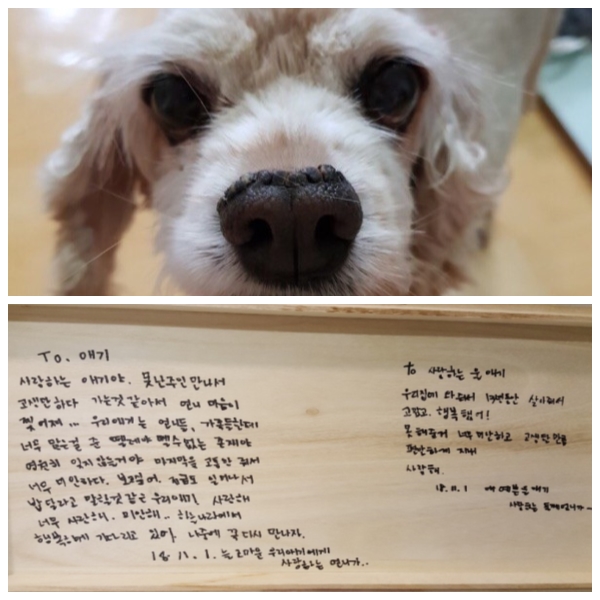 To. 애기
사랑하는 애기야. 못난주인 만나서
고생만하다 가는것 같아서 언니 마음이
찢어져... 우리에게는 언니든, 가족들한테
너무 많은걸 준 뗄레야 뗄수없는 존재야
영원히 잊지않을거야 마지막을 고통만 줘서
너무 미안하다. 보고싶어. 지금도 일어나서
밥달라고 말할것같은 우리애기 사랑해
너무 사랑해. 미안해.. 하늘나라에서
행복하게 기다리고 있어 나중에 꼭 다시 만나자.
18. 11. 1. 늘 고마운 우리아기에게
사랑하는 언니가..
To 사랑하는 울 애기
우리집에 와줘서 13년동안 살아줘서
고맙고. 행복했어!
못해준거 너무 미안하고 고생한 만큼
편안하게 지내
사랑해.
18. 11. 1 애기
사랑하는